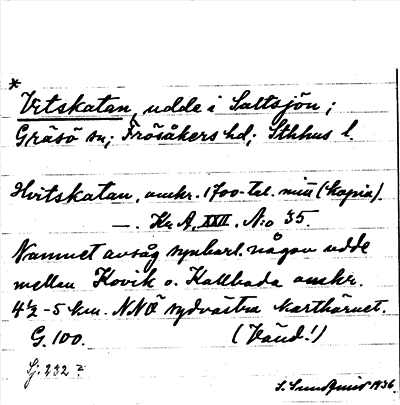 *
Vitskatan, udde i Saltsjön;
Gräsö sn; Frösåkers hd; Sthlms l.
Hvitskatan, omkr. 1700-tal. mitt (kopia).
— . Kr. A. XXII. N:o 35.
Namnet avsåg synbarl. någon udde
mellan Kovik o. Kallboda omkr.
4½-5 km. NNÖ sydvästra karthörnet.
G. 100. (Vänd!)
Sj. 232
1936.